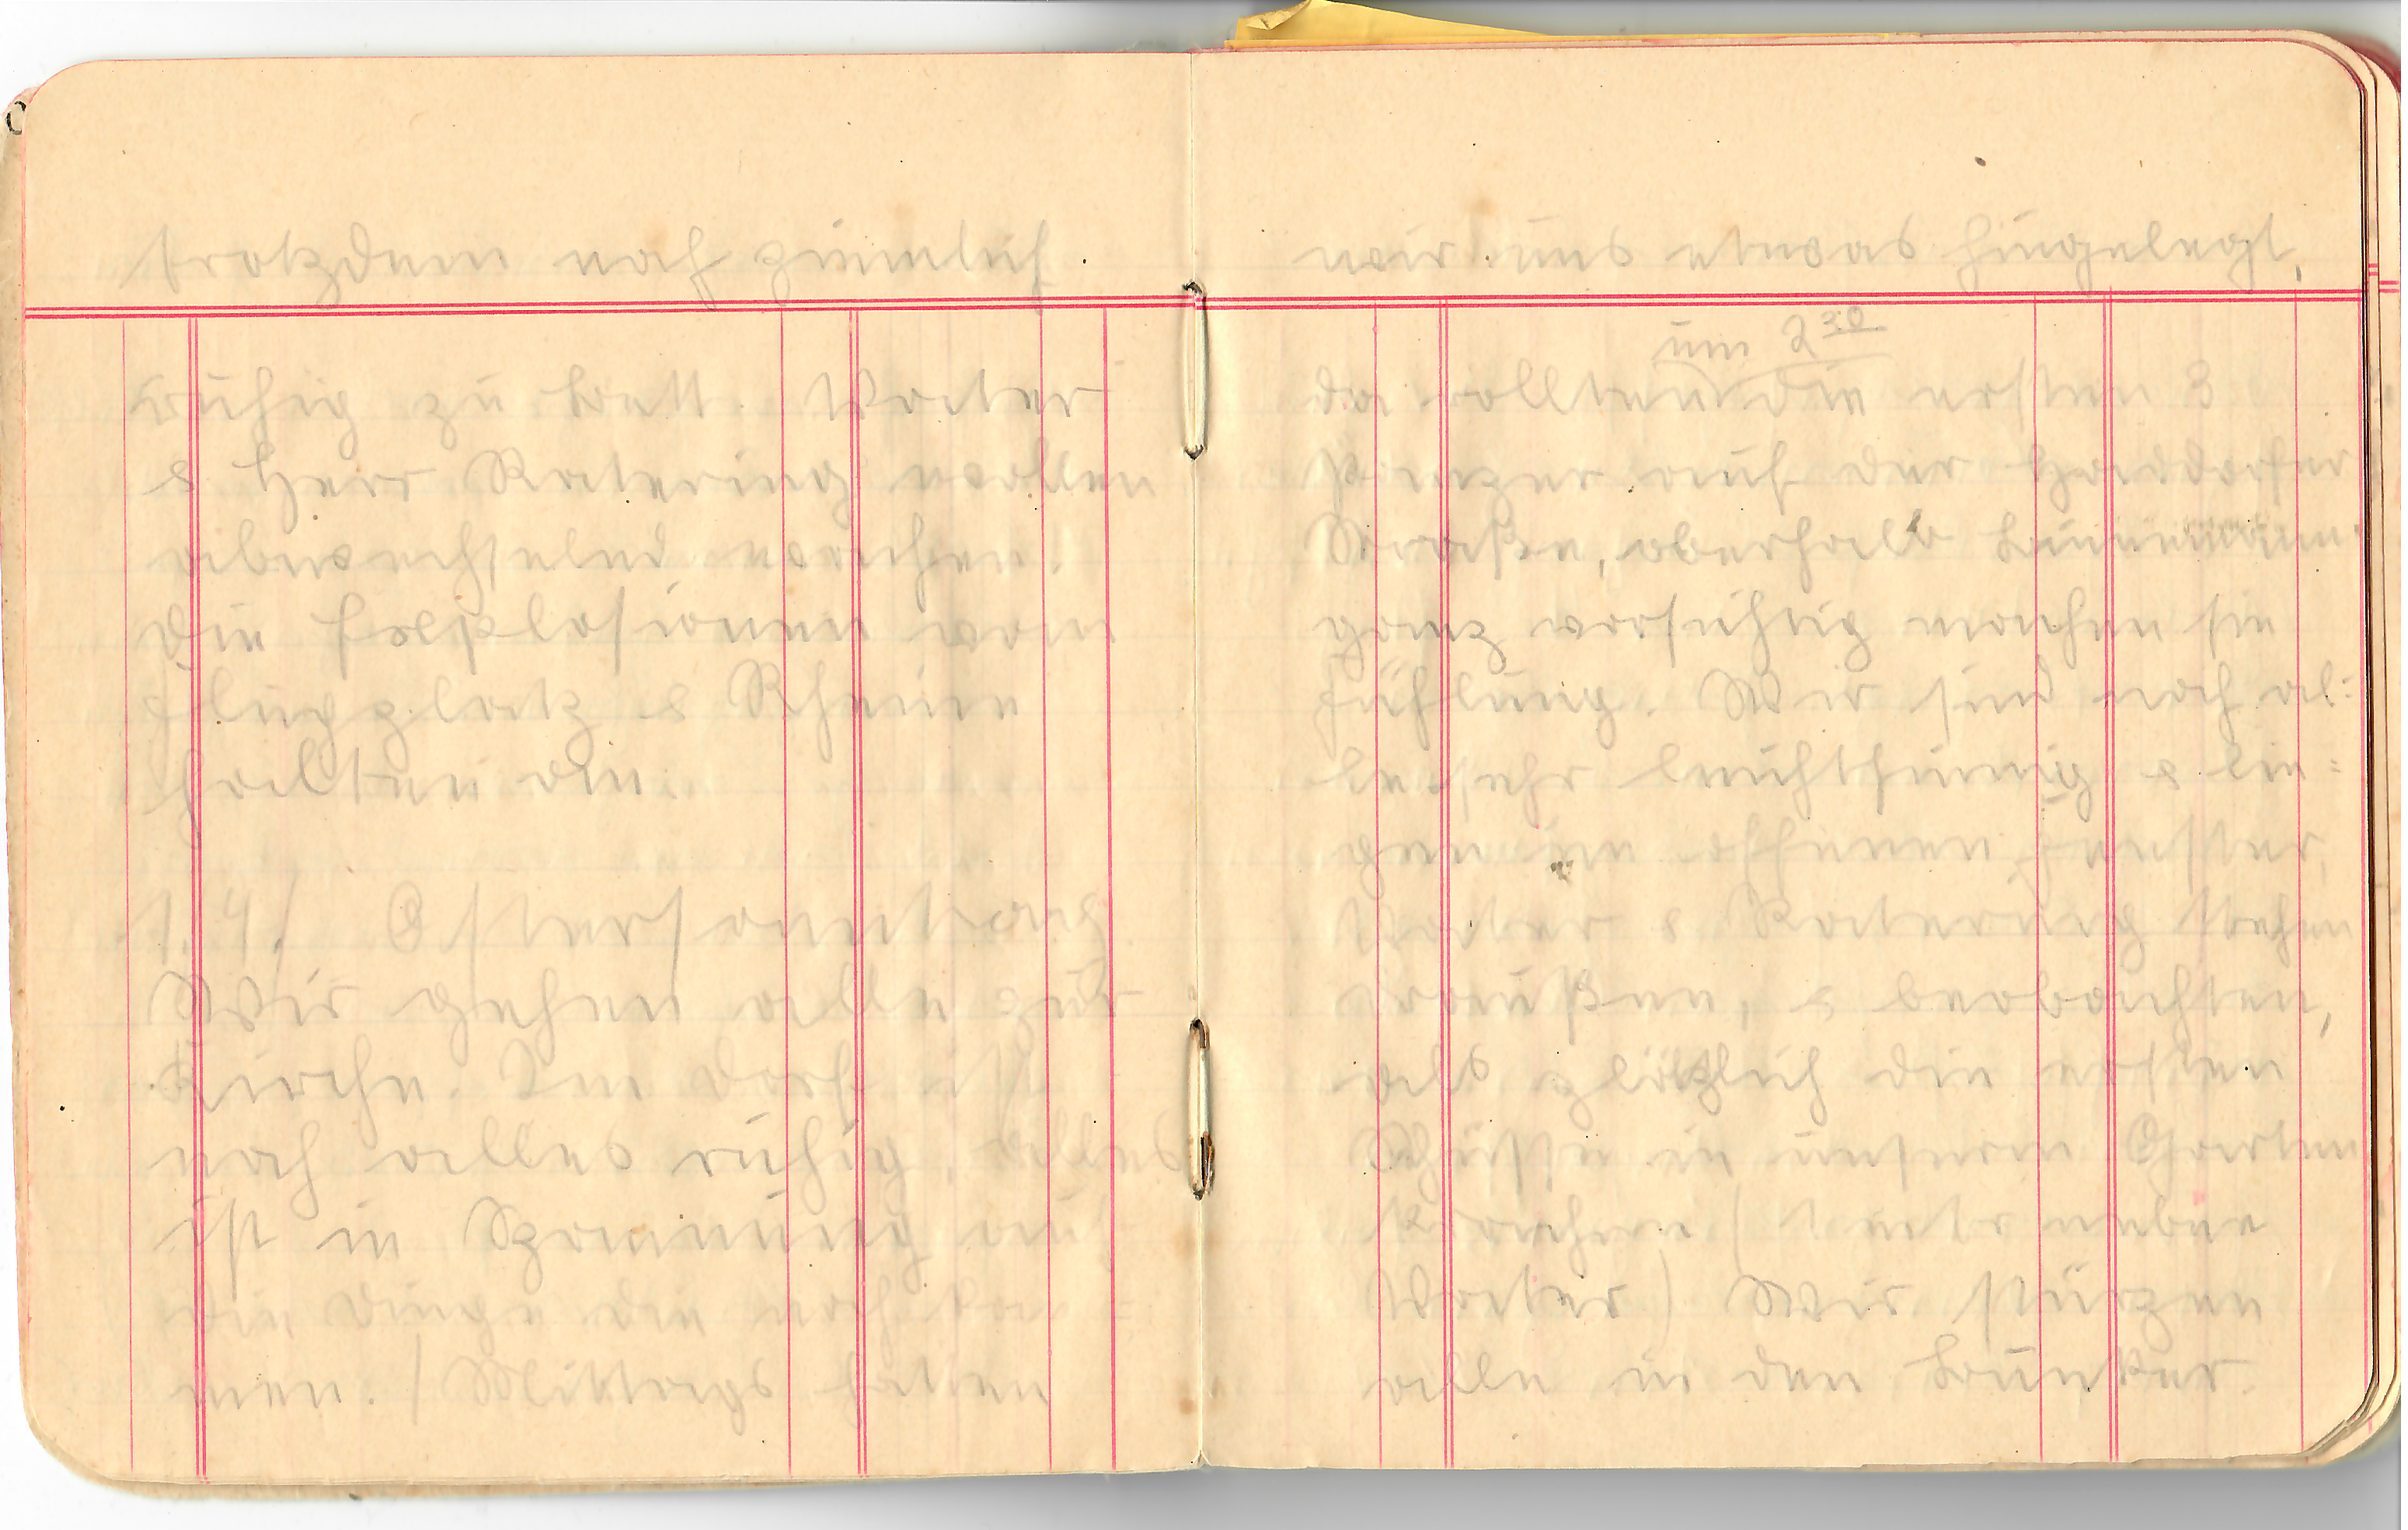 trotzdem noch ziemlich
ruhig zu Bett. Vater
& Herr Katering wollen
abwechselnd wachen.
Die Explosionen vom
Flugplatz & Rheine
halten an.
1.4./ Ostersonntag
Wir gehen alle zur
Kirche. Im Dorf ist
noch alles ruhig, alles
ist in Spannung auf
die Dinge die noch kom=
men. / Mittags hatten
wir uns etwas hingelegt,
um 2³⁰
da rollten die ersten 3
Panzer auf der Haddorfer
Straße, oberhalb
ganz vorsichtig machen sie
Fühlung. Wir sind noch al=
le sehr leichtsinnig & lie=
gen im offenen Fenster,
Vater & Katering stehen
draußen, & beobachten,
als plötzlich die ersten
Schüsse in unserm Garten
krachen (1 mtr neben
Vater) Wir stürzen
alle in den Bunker.